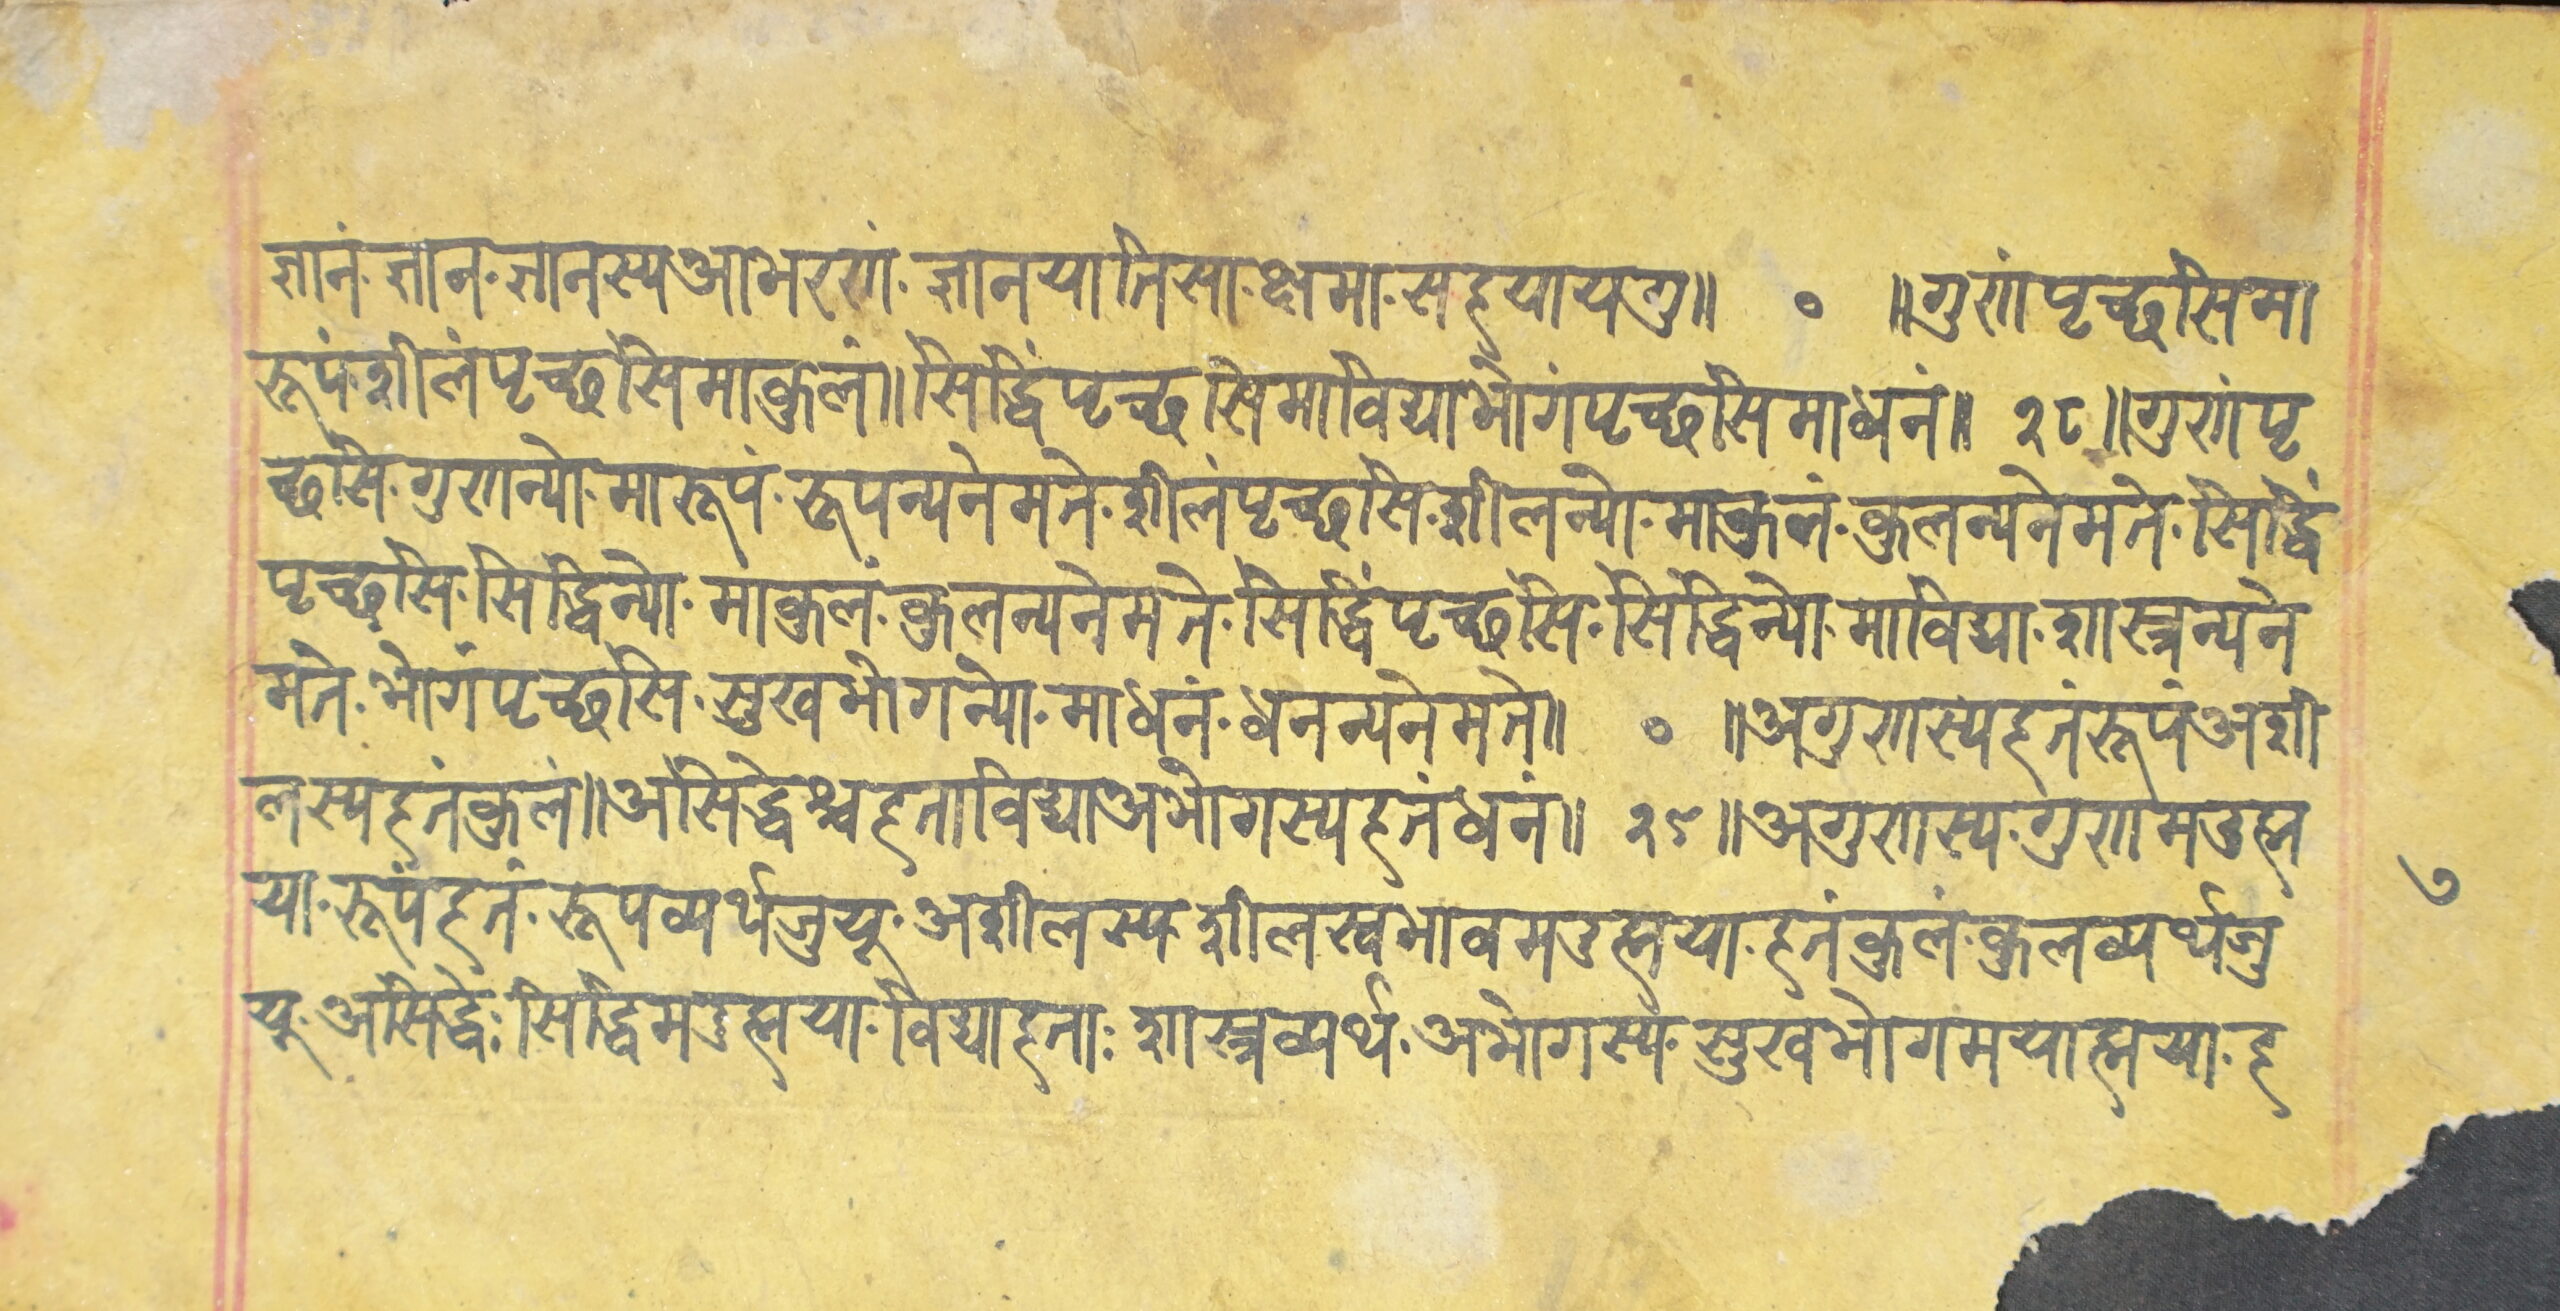 ज्ञानं· ज्ञान· ज्ञानस्य आभरणं· ज्ञानयातिसा· क्षमा· सहयायगु॥ ० ॥गुणंपृच्छसिमा
रूपंशीलंपृच्छसिमाकुलं॥सिद्धिंपृच्छसिमाविद्याभोगंपृच्छसिमाधनं॥ २८ ॥गुणंपृ
च्छसि· गुणन्यो· मारूपं· रूपन्यनेमते· शीलंपृच्छसि· शीलन्यो· माकुलं· कुलन्यनेमते· सिद्धिं
पृच्छसि· सिद्धिन्यो· माकुलं· कुलन्यनेमते· सिद्धिंपृच्छसि· सिद्धिन्यो· माविद्या· शास्त्रन्यने
मते· भोगंपृच्छसि· सुखभोगन्यो· माधनं· धनन्यनेमते॥ ० ॥अगुणस्यहतंरूपंअशी
लस्यहतंकुलं॥असिद्धेश्चहताविद्याअभोगस्यहतंधनं॥ २९ ॥अगुणस्य· गुणमउह्म
या· रूपंहतं· रूपव्यर्थजुयू· अशीलस्य· शीलस्वभावमउह्मया· हतंकुलं· कुलव्यर्थजु
यू· असिद्धेः सिद्धिमउह्मया· विद्याहताः शास्त्रव्यर्थ· अभोगस्य· सुखभोगमयाह्मया· ह
७